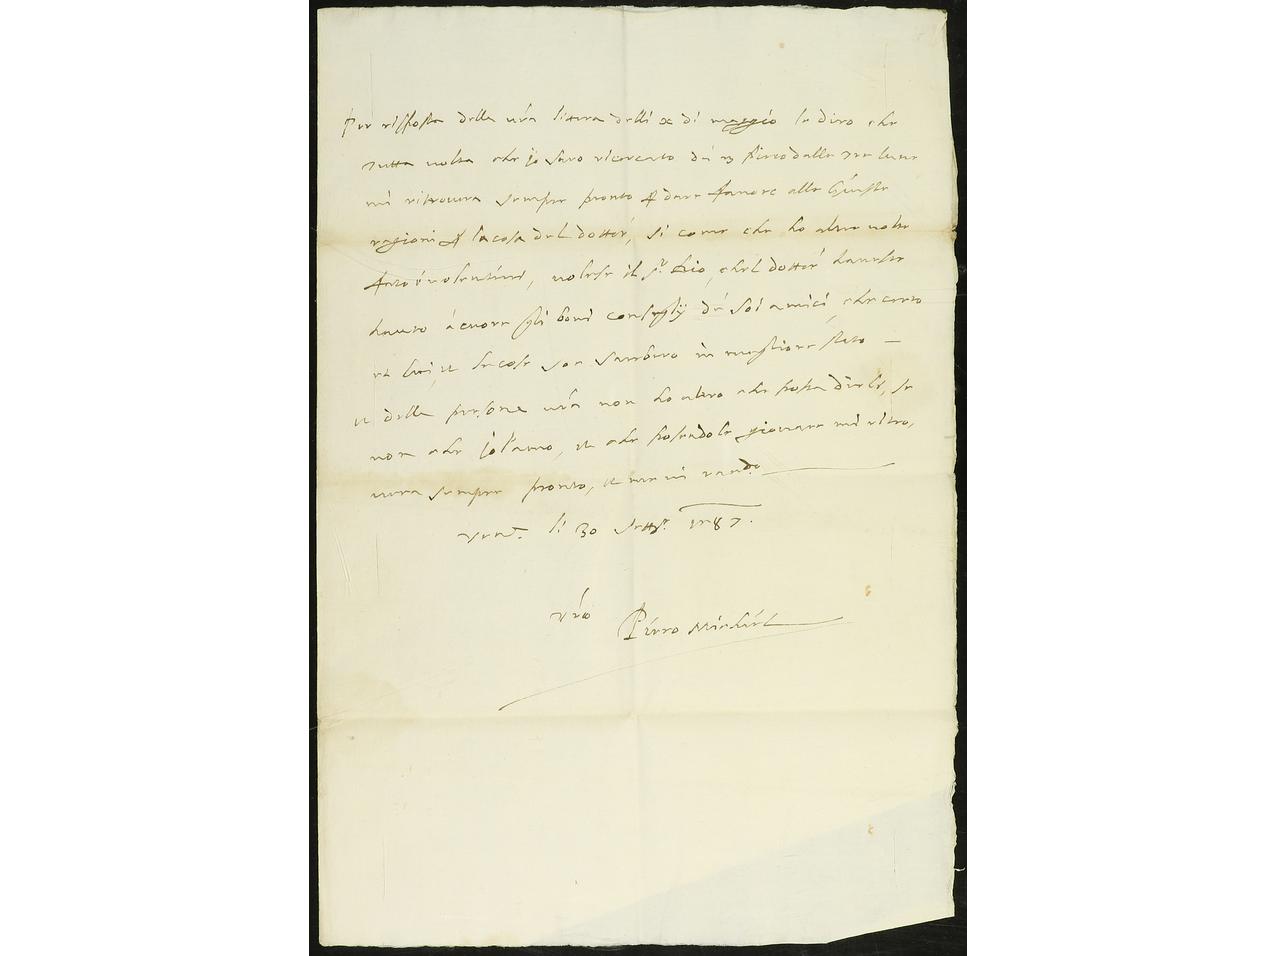 Per risposta della vra littera delli x di maggio le diro che
tutta volta che io saro ricercato da m piero dalle
mi ritrovera sempre pronto p dare favore alle giuste
ragioni p la cosa del dottor, si come che ho altre volte
fato volentieri, volesse il sr Dio, chel dottor havesse
hauto à cuore gli boni consegly de soi amici, che certo
et lui, et le cose soe sarebero in megliore stato —
et della persona vra non ho altro che possa dirle, se
non che io l'amo, et che posendole giovare mi ritro,
vera sempre pronto, et me vi racdo
Vena. li 30 settre. 1587.
vro Piero Michiel